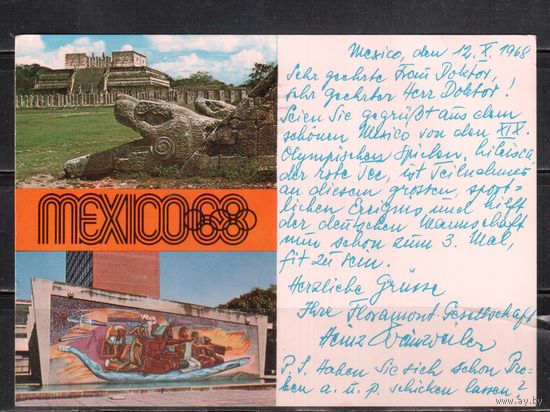 MEXICO68
Mexico, den 12. X. 1968
Sehr geehrte Frau Doktor,
sehr geehrter Herr Doktor!
Seien Sie gegrüßt aus dem
schönen Mexico von den XIX.
Olympischen Spielen,
der rote Tee, ist Teilnehmer
an diesem grossen, sport-
lichen Ereignis und hilft
der deutschen Mannschaft
nun schon zum 3. Mal,
fit zu sein.
Herzliche Grüsse
Ihre Floramond-Gesellschaft
Heinz
P.S. Haben Sie sich schon Pro-
ben a. u. p. schicken lassen?
www.ay.by